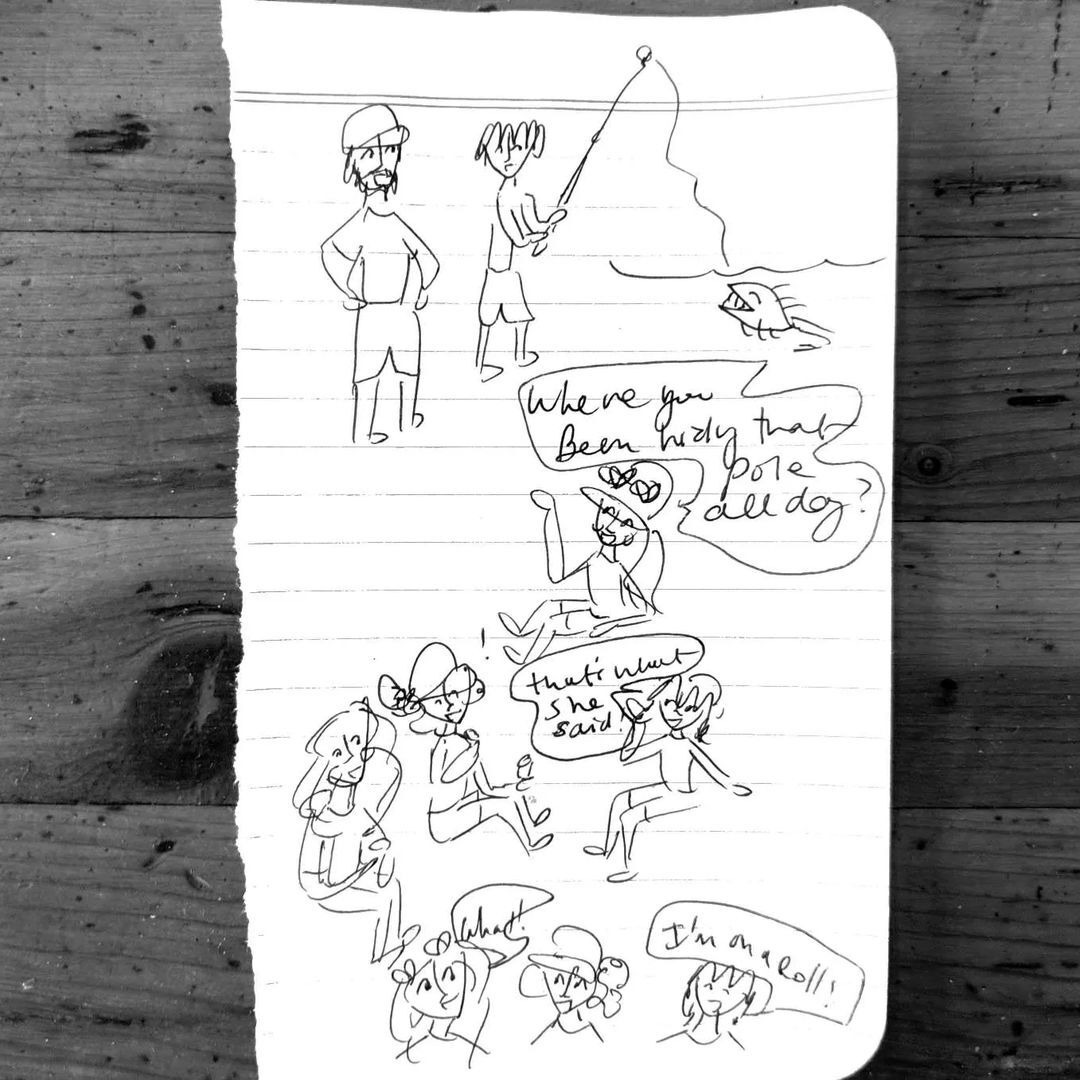 Where you
Been hidig that
pole
all day?
!
that's what
she
said!
What!
I'm on a roll!